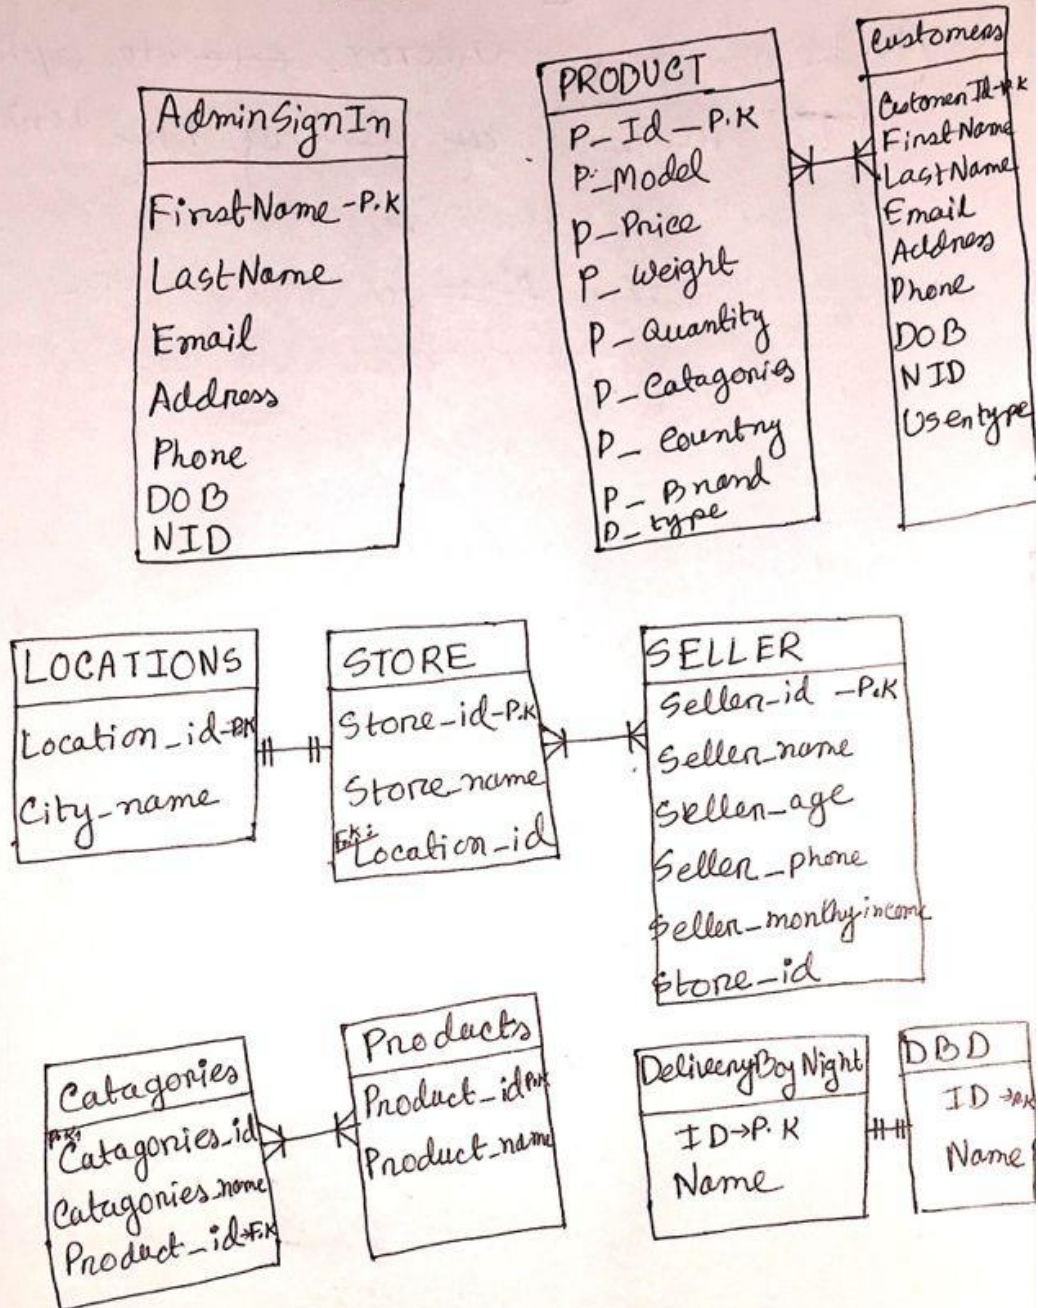 AdminSignIn
FirstName-P.K
LastName
Email
Address
Phone
DOB
NID
PRODUCT
P_Id_P.K
P_Model
P_Price
P_weight
P_Quantity
P_Catagories
P_Country
P_Brand
P_type
Customers
CustomerId-P.K
FirstName
LastName
Email
Address
Phone
DOB
NID
Usertype
LOCATIONS
Location_id-P.K
City_name
STORE
Store-id-P.K
Store_name
F.K: Location_id
SELLER
Seller-id -P.K
Seller_name
Seller_age
Seller_phone
Seller_monthyincome
Store_id
Catagories
P.K: Catagories_id
Catagories_name
Product_id→F.K
Products
Product_id P.K
Product_name
DeliveryBoyNight
ID→P.K
Name
DBD
ID→P.K
Name